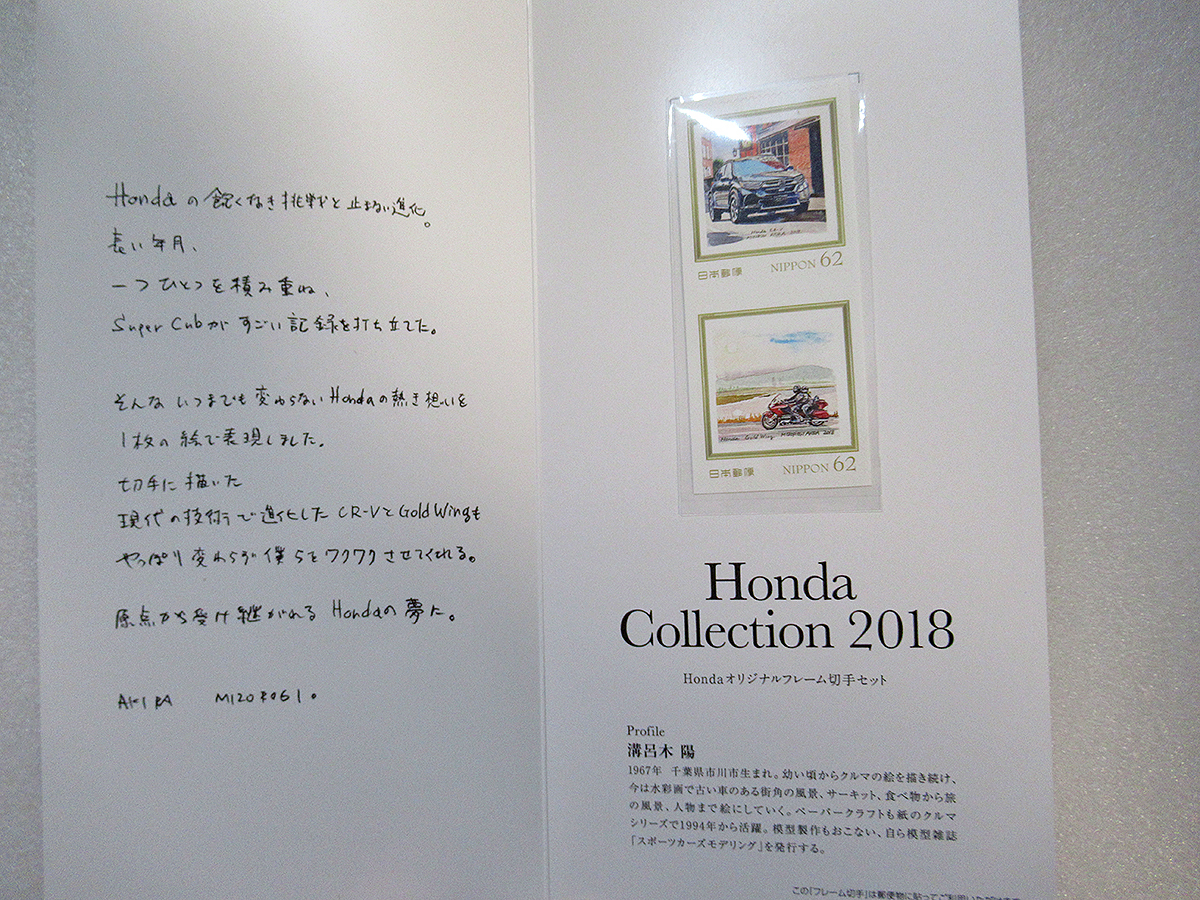 Hondaの飽くなき挑戦と止まない進化。
長い年月、
一つひとつを積み重ね、
Super Cubが すごい記録を打ち立てた。
そんな いつまでも変わらないHondaの熱き想いを
1枚の絵で表現しました。
切手に描いた
現代の技術で進化したCR-VとGold Wingも
やっぱり変わらず僕らをワクワクさせてくれる。
原点から受け継がれる Hondaの夢に。
AKIRA MIZOROGI。
Honda CR-V
日本郵便 NIPPON 62
Honda Gold Wing MIZOROGI AKIRA 2018
日本郵便 NIPPON 62
Honda
Collection 2018
Hondaオリジナルフレーム切手セット
Profile
溝呂木 陽
1967年 千葉県市川市生まれ。幼い頃からクルマの絵を描き続け、
今は水彩画で古い車のある街角の風景、サーキット、食べ物から旅
の風景、人物まで絵にしていく。ペーパークラフトも紙のクルマ
シリーズで1994年から活躍。模型製作もおこない、自ら模型雑誌
「スポーツカーズモデリング」を発行する。
この「フレーム切手」は郵便物に貼ってご利用いただけます